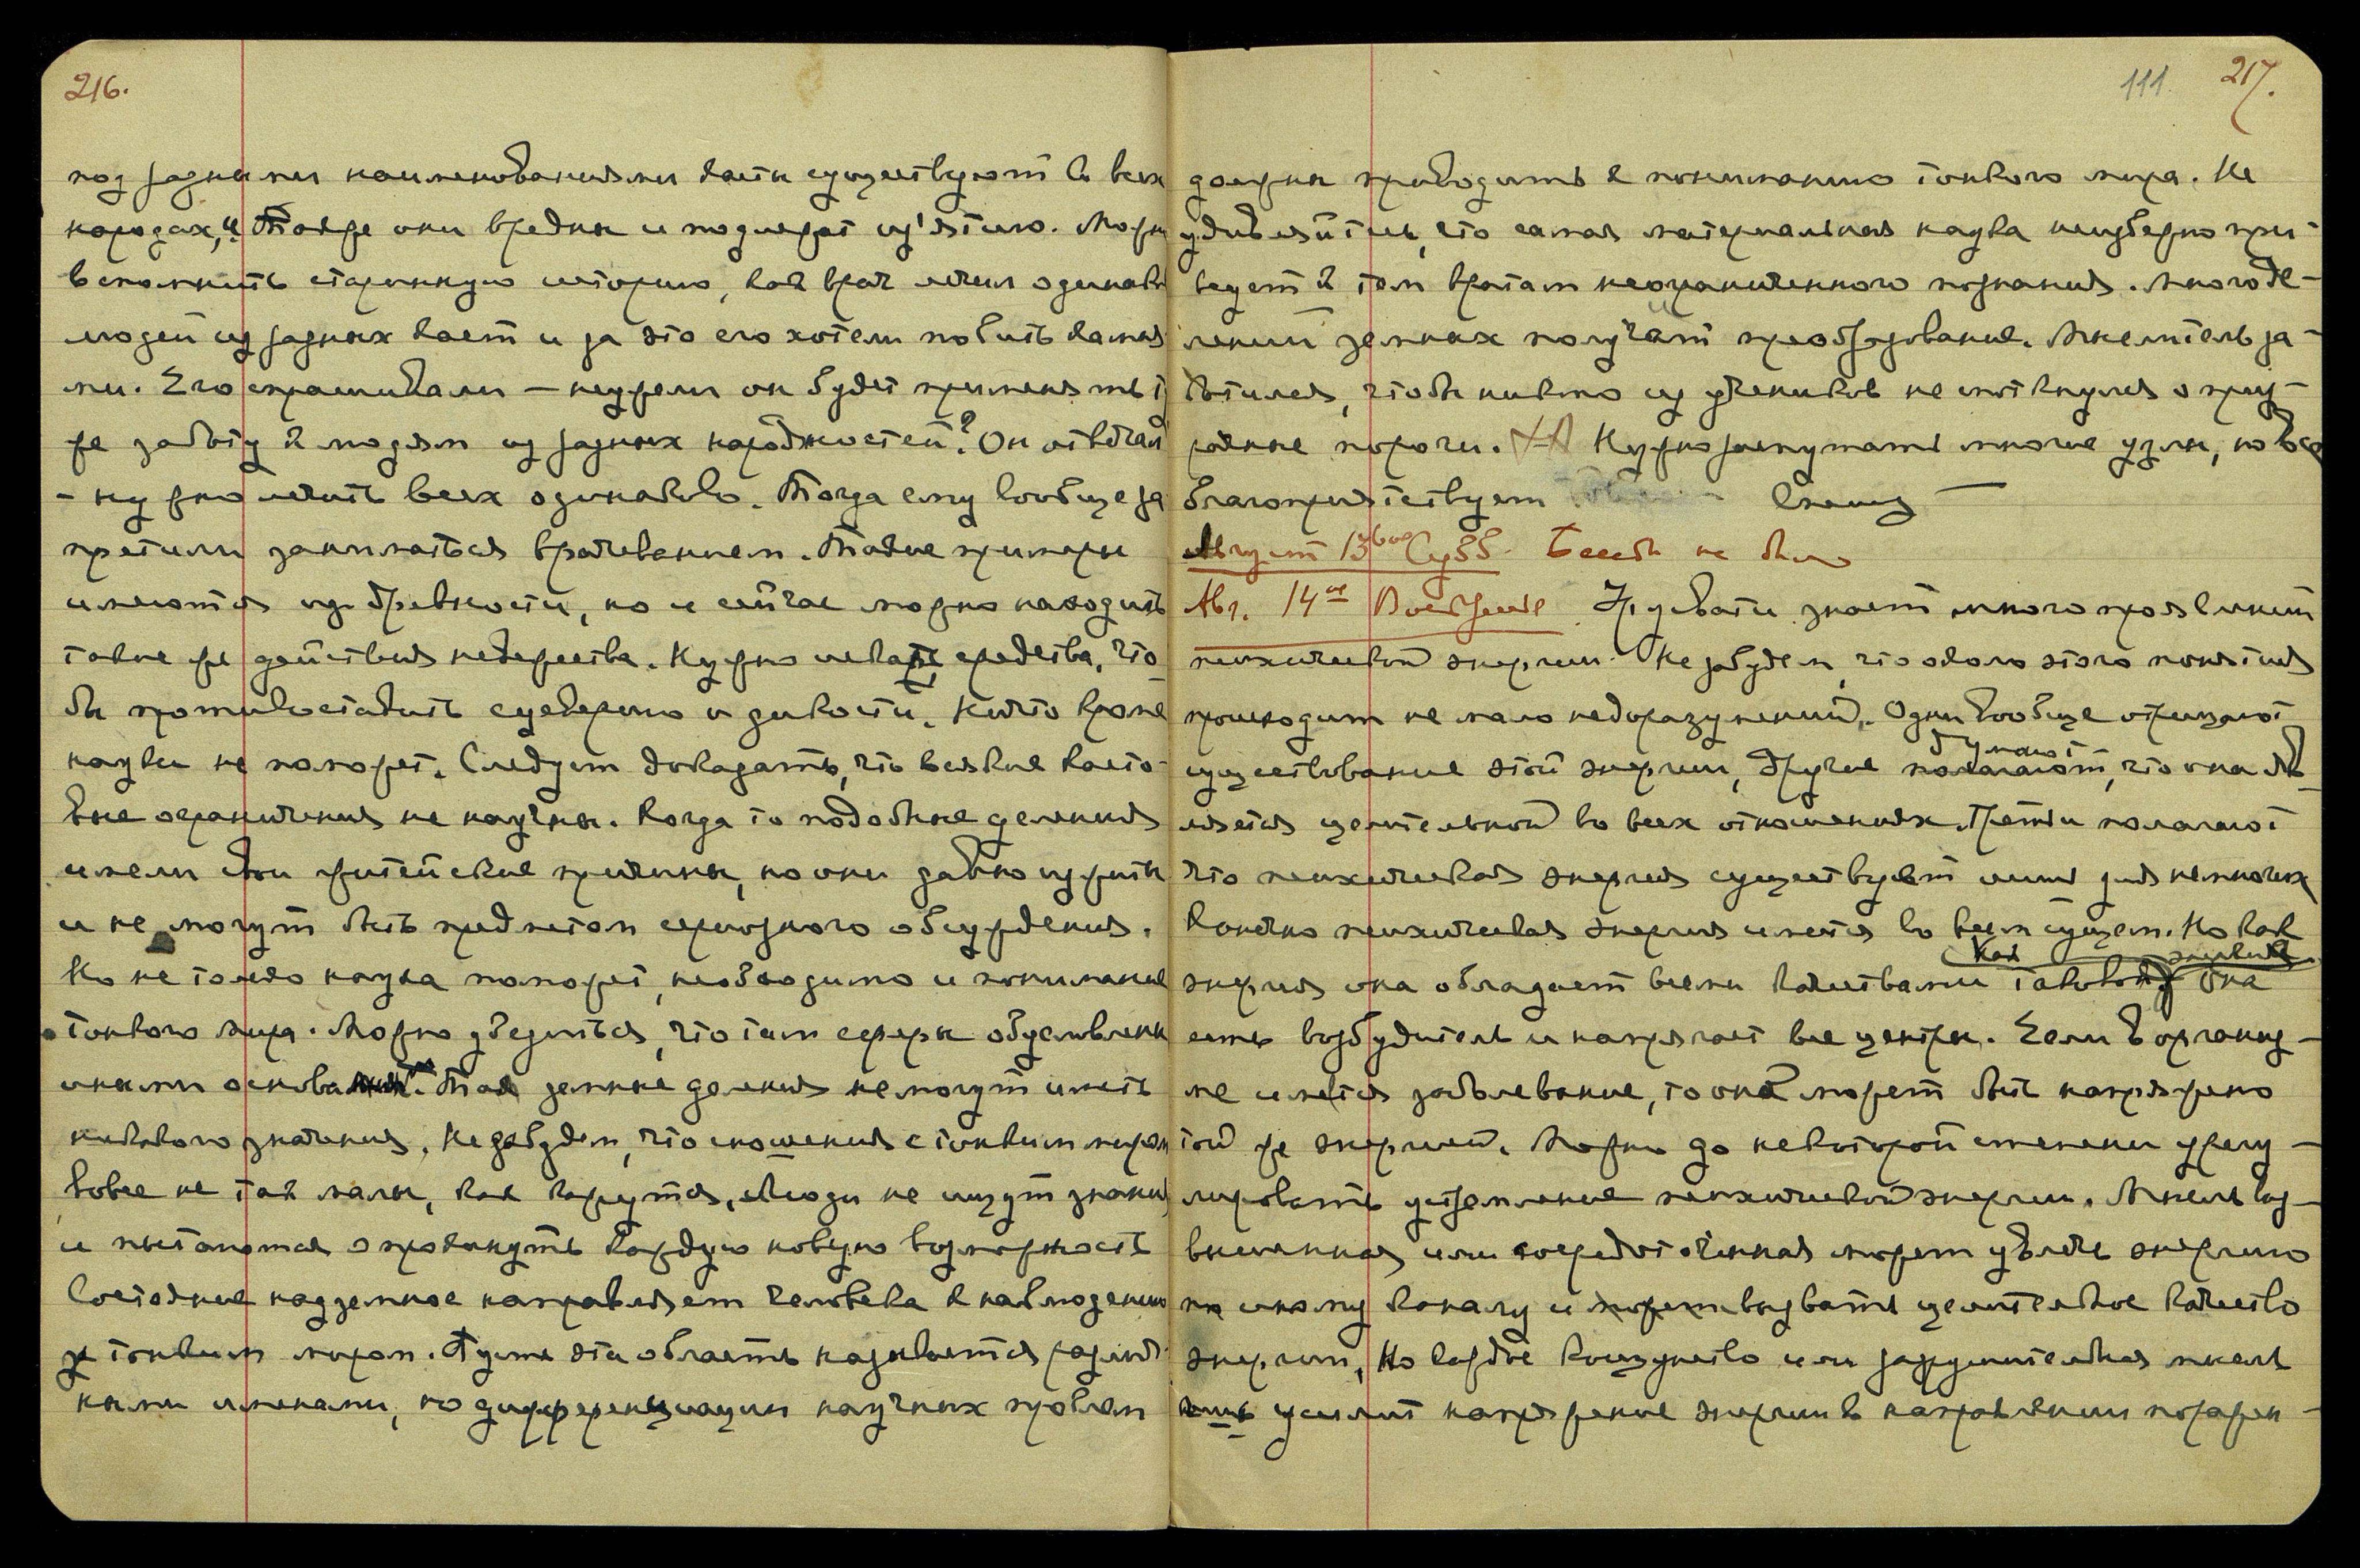 216.
под разными наименованиями касты существуют в всех
народах, и также они вредны и подлежат из'ятию. Можно
вспомнить старинную историю, как врач лечил одинаково
людей из разных каст и за это его хотели побить камня
ми. Его спрашивали — неужели он будет применять ту
же заботу к людям из разных народностей? Он отвечал
- нужно лечить всех одинаково. Тогда ему вообще за
претили заниматься врачеванием. Такие примеры
имеются из древности, но и сейчас можно находить
такие же действия невежества. Нужно искать средства, что
бы противоставить суеверию и дикости. Ничто кроме
науки не поможет. Следует доказать, что всякие касто-
вые ограничения не научны. Когда то подобные деления
имели свои житейские причины, но они давно изжиты
и не могут быть предметом серьозного обсуждения.
Но не только наука поможет, необходимо и понимание
тонкого мира. Можно убедиться, что там сферы обусловлены
иными основами. Так земные деления не могут иметь
никакого значения. Не забудем, что сношения с тонким миром
вовсе не так малы, как кажутся. Люди не ищут знания
и пытаются опрокинуть каждую новую возможность
Состояние надземное направляет человека к наблюдению
за тонким миром. Пусть эта область называется различ
ными именами, но дифференциации научных проблем
111 217.
должны приводить к пониманию тонкого мира. Не
удивляйтесь, что самая материальная наука неизбежно при-
ведет к тем вратам неограниченного познания. Много де-
лений земных получат преобразование. Мыслитель за-
ботился, чтобы никто из учеников не споткнулся о при-
рочные пороги. Нужно распутать многие узлы, но все
благоприятствует спешу —
Август 13ое Субб. Бесед не было
Авг. 14ое Воскресенье Урусвати знает много проявлений
психической энергии. Не забудем, что около этого понятия
происходит не мало недоразумений. Одни вообще отрицают
думают
существование этой энергии, другие полагают, что она яв
ляется целительной во всех отношениях. Третьи полагают
что психическая энергия существует лишь для немногих
Конечно психическая энергия имеется во всем сущем. Но как
как энергия
энергия она обладает всеми качествами таковой. Она
есть возбудитель и напрягает все центры. Если в организ-
ме имеется заболевание, то оно может быть напряжено
той же энергией. Можно до некоторой степени урегу-
лировать устремление психической энергии. Мысль воз-
вышенная или сосредоточенная может увлечь энергию
по иному каналу и может вызвать целительное качество
энергии, Но каждое кощунство или разрушительная мысль
лишь усилит напряжение энергии в направлении поражен-